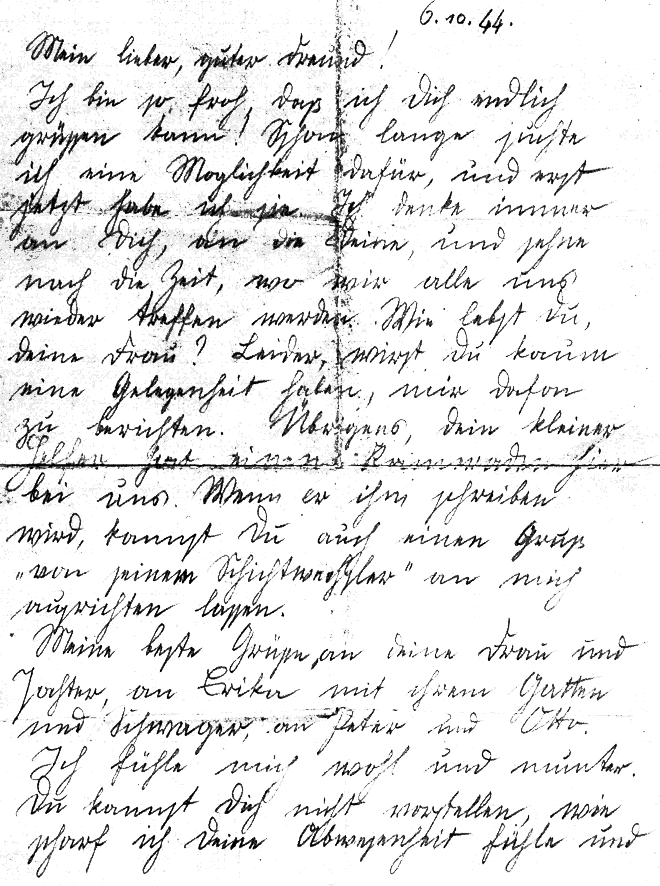 6.10.44.
Mein lieber, guter Freund!
Ich bin so froh, daß ich Dich endlich
grüßen kann! Schon lange suchte
ich eine Moglichkeit dafür, und erst
jetzt habe ich sie. Ich denke immer
an Dich, an die Deine, und sehne
nach die Zeit, wo wir alle uns
wieder treffen werden. Wie lebst Du,
deine Frau? Leider, wirst Du kaum
eine Gelegenheit haben, mir dafon
zu berichten. Übrigens, dein kleiner
Helfer hat einen Kameraden hier
bei uns. Wenn er ihm schreiben
wird, kannst Du auch einen Gruß
„von seinem Schichtwechsler" an mich
ausrichten lassen.
Meine beste Grüße an deine Frau und
Tochter, an Erika mit ihrem Gatten
und Schwager, an Peter und Otto.
Ich fühle mich wohl und munter.
Du kannst Dich nicht vorstellen, wie
scharf ich Deine Abwesenheit fühle und